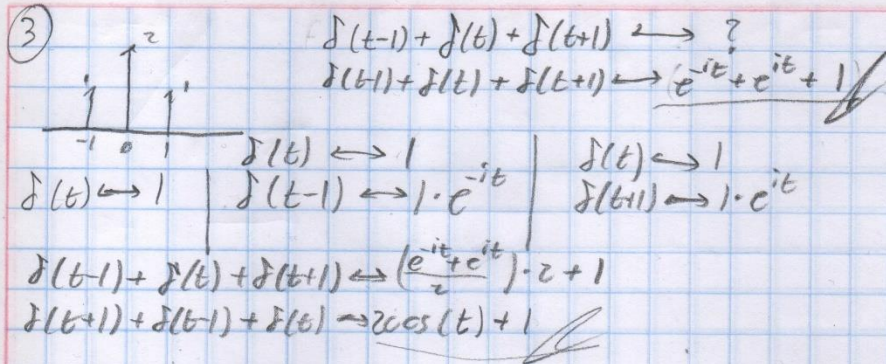 3
2
1 1
-1 0 1
δ(t-1) + δ(t) + δ(t+1) ⟷ ?
δ(t-1) + δ(t) + δ(t+1) ⟷ (e^{-it} + e^{it} + 1)
δ(t) ⟷ 1
δ(t) ⟷ 1
δ(t-1) ⟷ 1 · e^{-it}
δ(t) ⟷ 1
δ(t+1) ⟷ 1 · e^{it}
δ(t-1) + δ(t) + δ(t+1) ⟷ (\frac{e^{-it} + e^{it}}{2}) · 2 + 1
δ(t+1) + δ(t-1) + δ(t) → 2cos(t) + 1